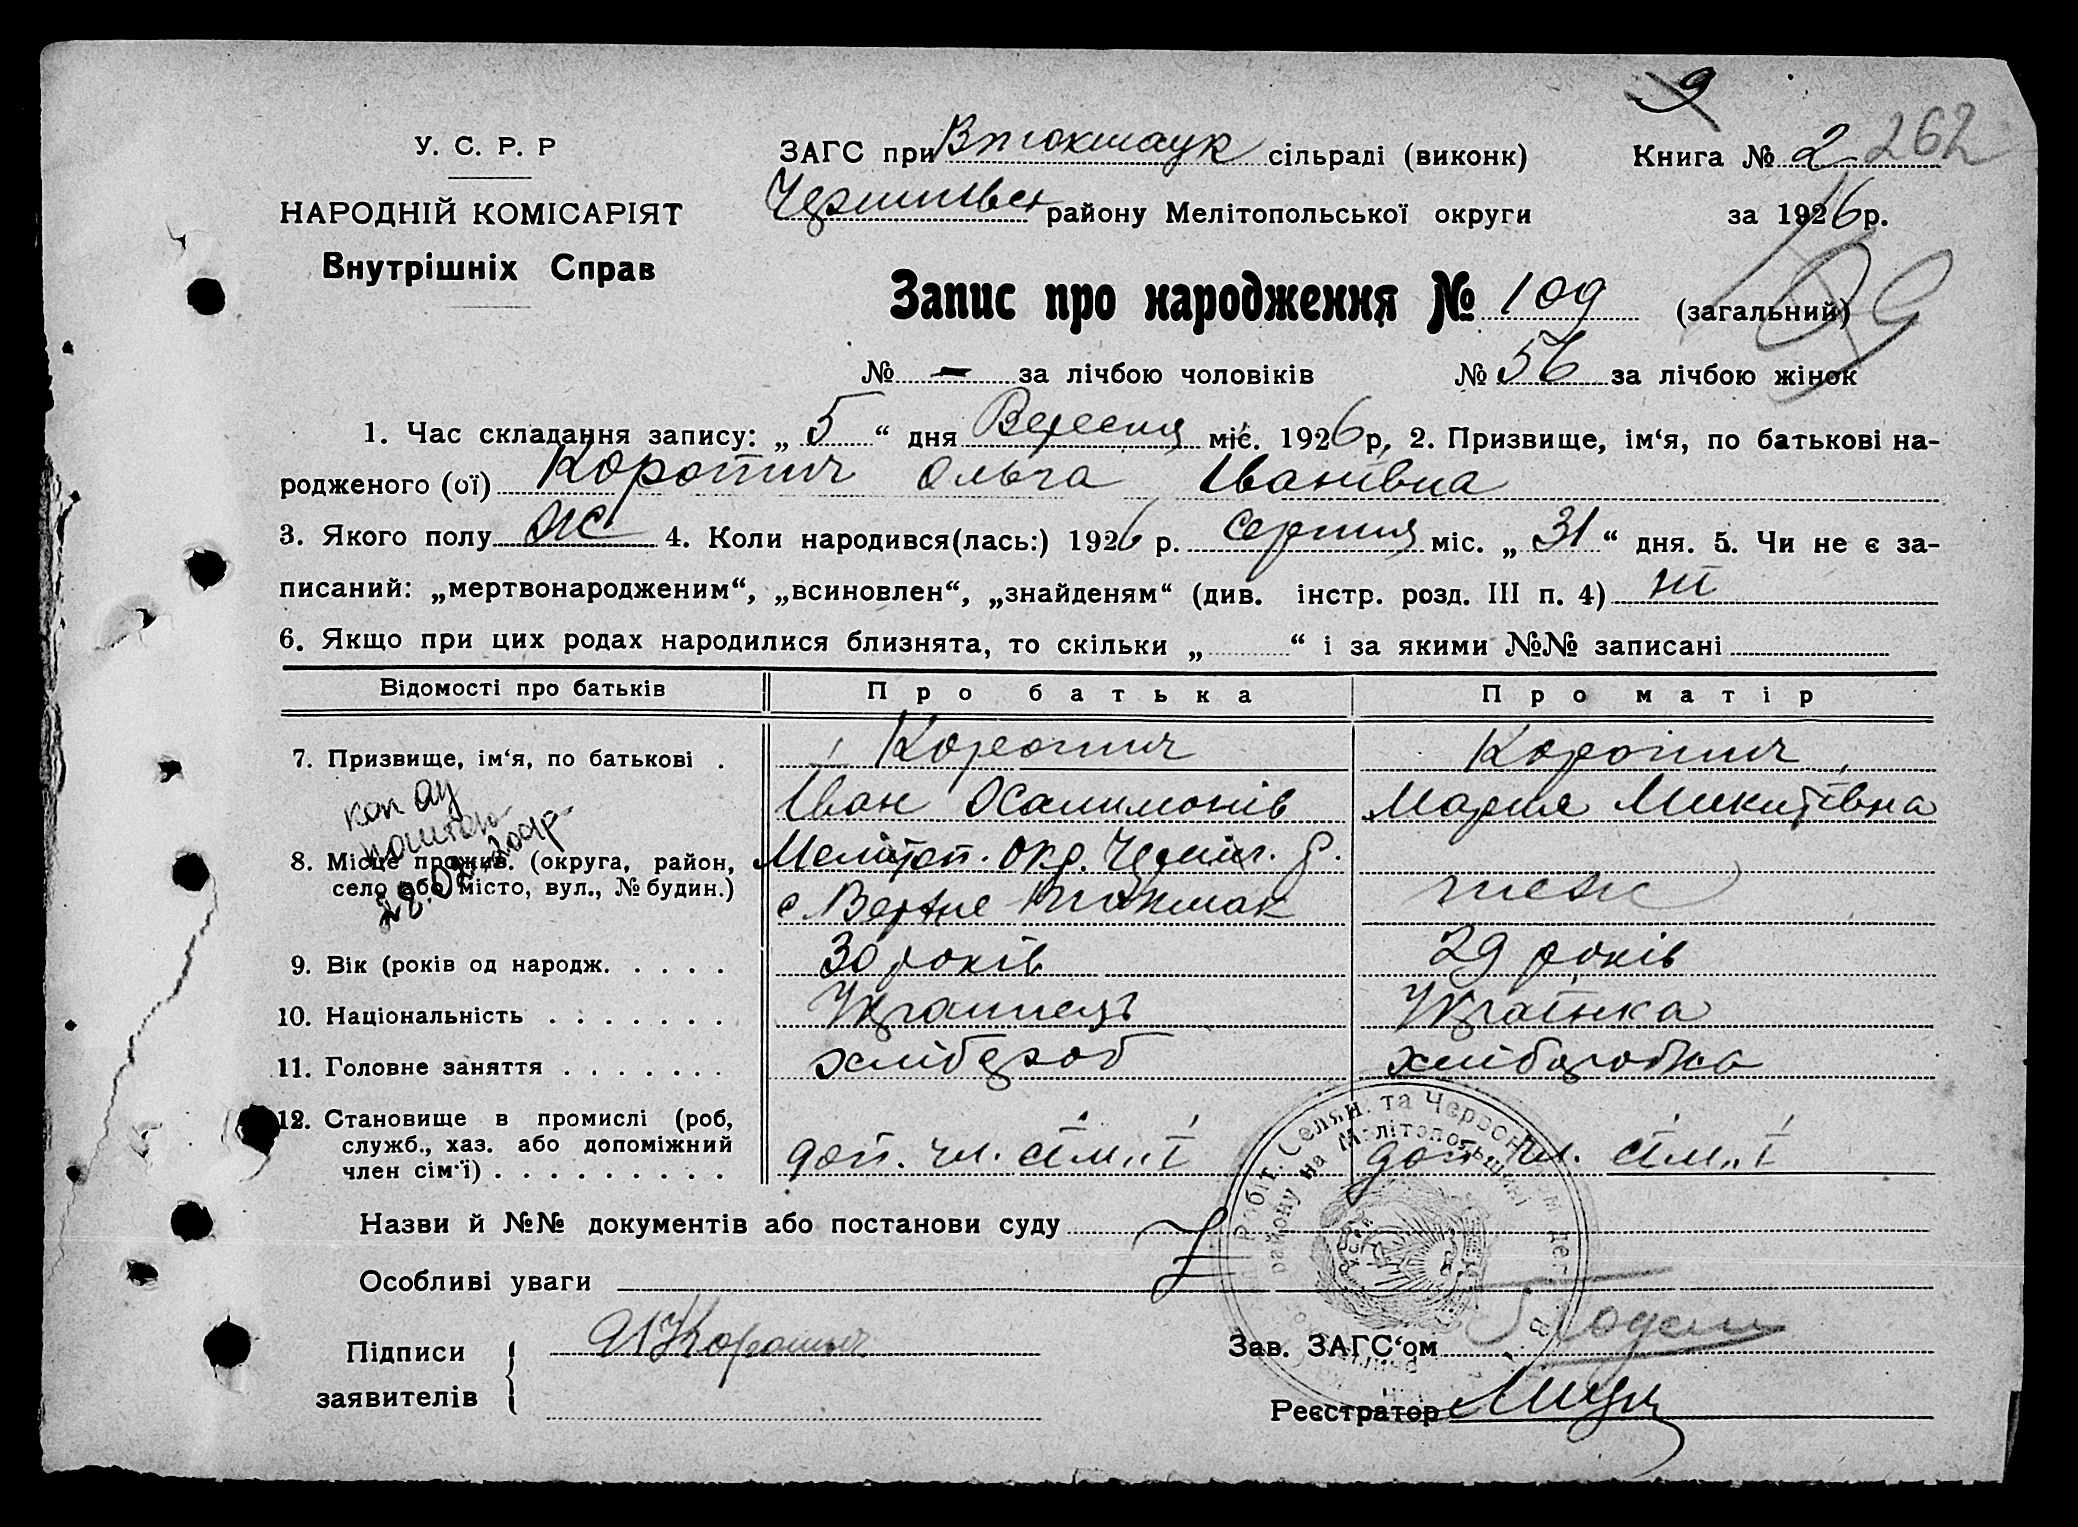 9
У. С. Р. Р
ЗАГС при Втокмаук сільраді (виконк)
Книга № 2 262
НАРОДНІЙ КОМІСАРІЯТ
Чернигівсь району Мелітопольської округи
за 1926 р.
Внутрішніх Справ
Запис про народження № 109 (загальний) 109
№ — за лічбою чоловіків № 56 за лічбою жінок
1. Час складання запису: „ 5 “ дня Вересня міс. 1926 р, 2. Призвище, ім‘я, по батькові на-
родженого (ої) Коротич Ольга Іванівна
3. Якого полу ж 4. Коли народився(лась:) 1926 р. серпня міс. „ 31 “ дня. 5. Чи не є за-
писаний: „мертвонародженим“, „всиновлен“, „знайденям“ (див. інстр. розд. III п. 4) ні
6. Якщо при цих родах народилися близнята, то скільки „ “ і за якими №№ записані
Відомості про батьків Про батька Про матір
7. Призвище, ім‘я, по батькові . Коротич Коротич
Іван Осалимонів Мария Микитівна
8. Місце прожив. (округа, район, Меліtоп. окр. Черніг. р.
село або місто, вул., № будин.) с Верхне Токмак теж
9. Вік (років од народж. . . . . 30 років 29 років
10. Національність . . . . . . . Українець Українка
11. Головне заняття . . . . . . . хлібороб хліборобка
12. Становище в промислі (роб,
служб., хаз. або допоміжний доп. чл. сім"ї доп. чл. сім"ї
член сім‘ї) . . . . . . . . .
Назви й №№ документів або постанови суду
Особливі уваги
Підписи
заявителів
Коротич
Зав. ЗАГС‘ом
Реєстратор
Робіт. Селян. та Червоно
району на Мелітопольщині